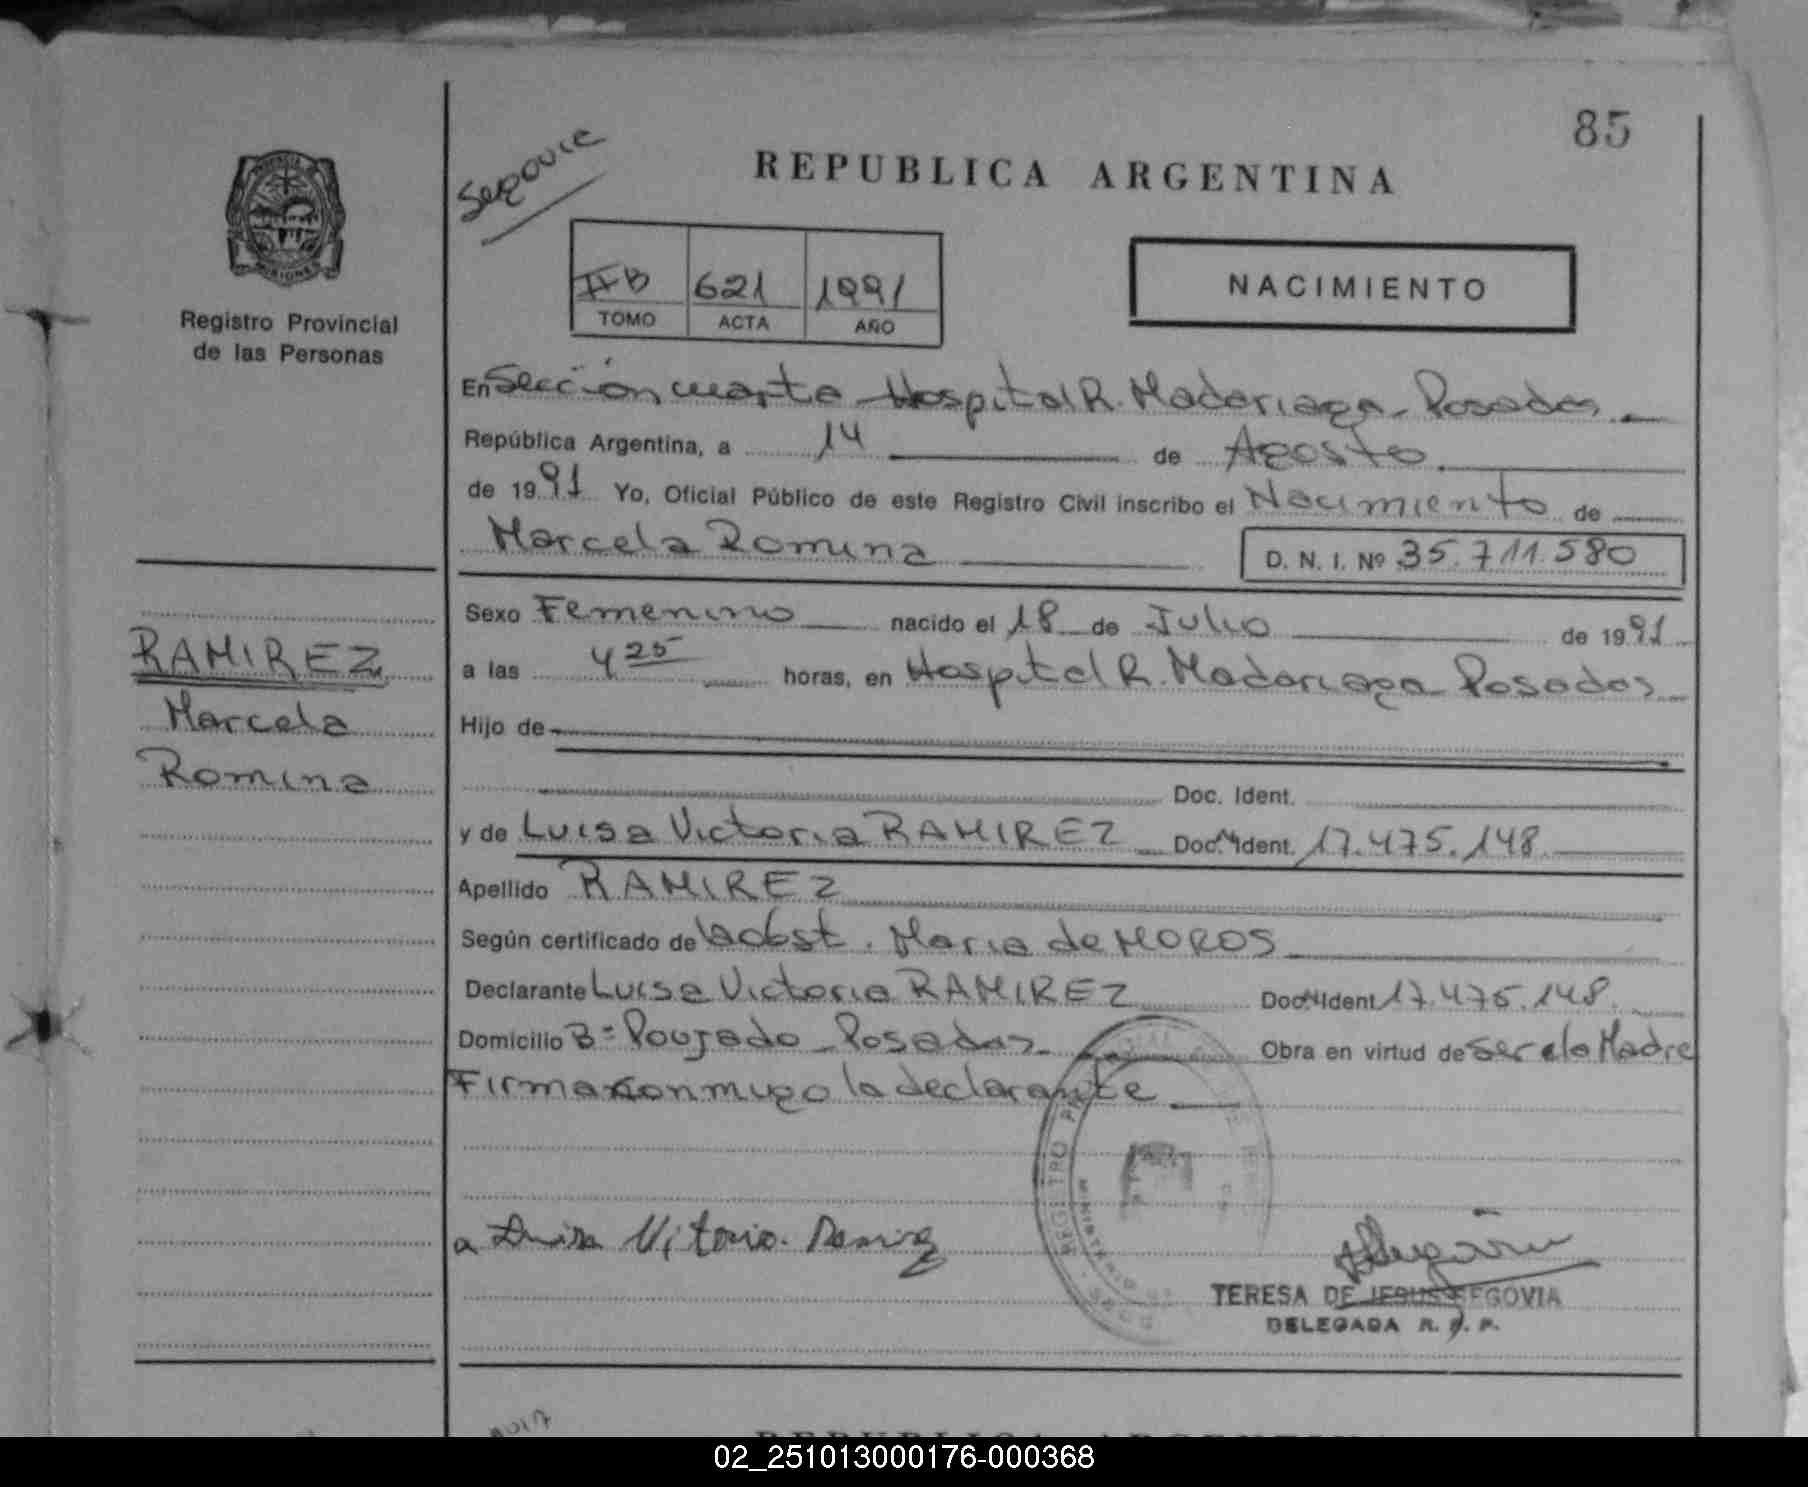 85
Segovia
REPUBLICA ARGENTINA
PROVINCIA
MISIONES
Registro Provincial
de las Personas
II B 621 1991
TOMO ACTA AÑO
NACIMIENTO
En Sección cuarta Hospital R. Madariaga - Posadas
República Argentina, a 14 de Agosto
de 1991 Yo, Oficial Público de este Registro Civil inscribo el Nacimiento de
Marcela Romina D. N. I. Nº 35.711.580
Sexo Femenino nacido el 18 de Julio de 1991
RAMIREZ
Marcela
Romina
a las 4 25 horas, en Hospital R. Madariaga Posadas
Hijo de
Doc. Ident.
y de Luisa Victoria RAMIREZ Doc. Ident. 17.475.148
Apellido RAMIREZ
Según certificado de la obst. Maria de MOROS
Declarante Luisa Victoria RAMIREZ Doc. Ident 17.475.148
Domicilio Bº Poujado - Posadas Obra en virtud de ser la Madre
Firma conmigo la declarante
REGISTRO
MINISTERIO
a Luisa Vitoria Ramirez
TERESA DE JESUS SEGOVIA
DELEGADA R. P. P.
REPUBLICA ARGENTINA
02_251013000176-000368